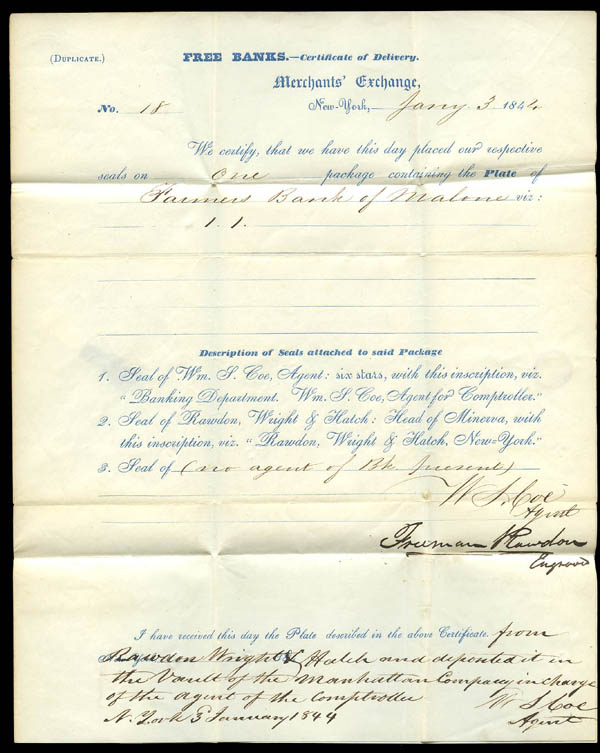 (Duplicate.)
FREE BANKS.—Certificate of Delivery.
Merchants' Exchange,
No. 18 New-York, Jany 3 1844
We certify, that we have this day placed our respective
seals on One package containing the Plate of
Farmers Bank of Malone viz:
1. 1.
Description of Seals attached to said Package
1. Seal of Wm. S. Coe, Agent: six stars, with this inscription, viz.
"Banking Department. Wm. S. Coe, Agent for Comptroller."
2. Seal of Rawdon, Wright & Hatch: Head of Minerva, with
this inscription, viz. "Rawdon, Wright & Hatch, New-York."
3. Seal of (no agent of Bk present)
W S. Coe
Agent
Freeman Rawdon
Engraver
I have received this day the Plate described in the above Certificate. from
Rawdon Wright & Hatch and deposited it in
the Vault of the Manhattan Company in charge
of the agent of the Comptroller
N. York 3 January 1844
W S Coe
Agent